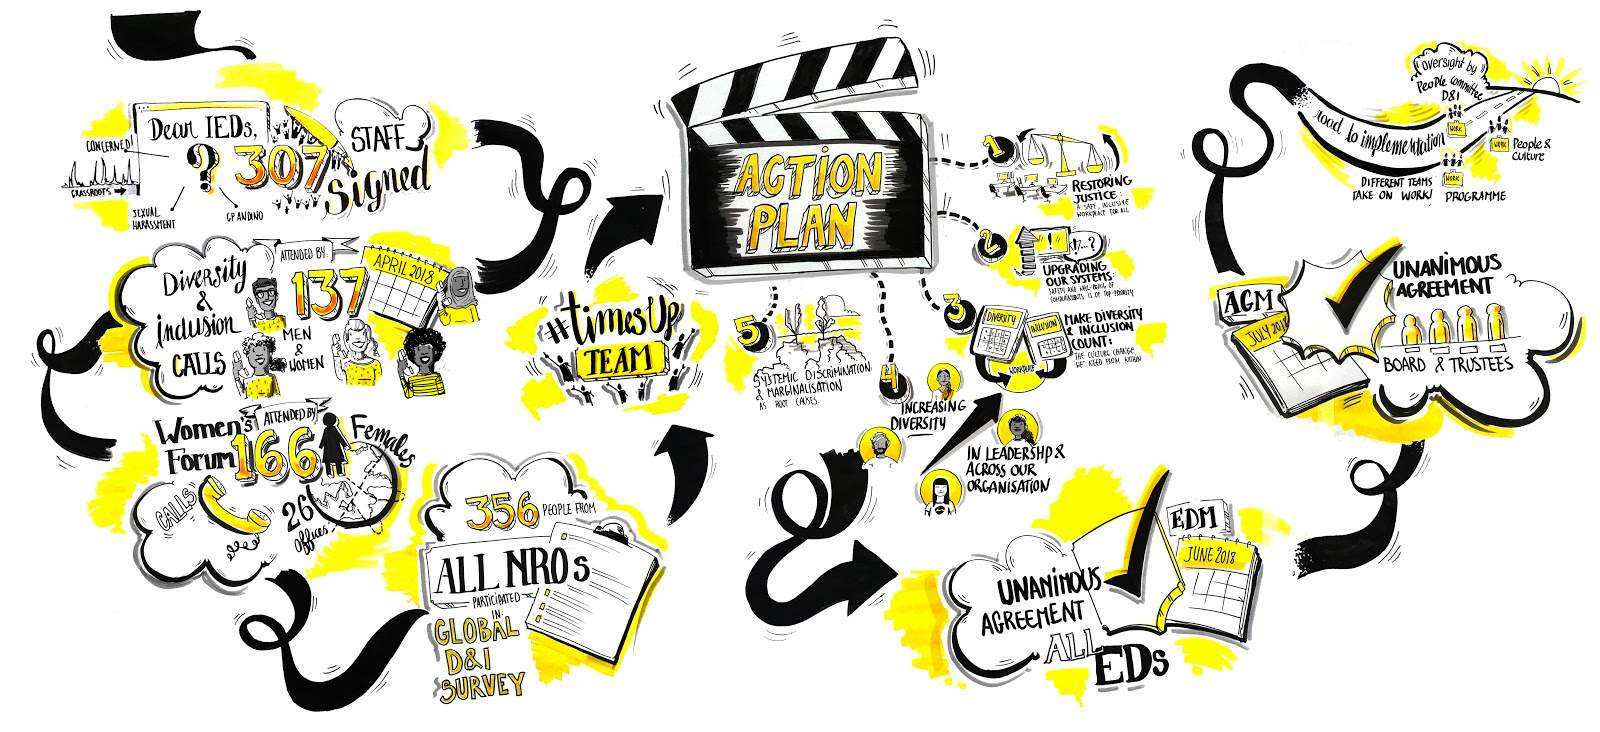 Dear IEDs,
CONCERNED!
?
307
STAFF
Signed
GRASSROOTS
SEXUAL
HARASSMENT
GP ANDINO
Diversity
&
inclusion
CALLS
ATTENDED BY:
137
MEN
&
WOMEN
APRIL 2018
Women's
Forum
ATTENDED BY
166
Females
CALLS
26
offices
356
PEOPLE FROM
ALL NROs
PARTICIPATED
IN:
GLOBAL
D&I
SURVEY
#timesUp
TEAM
ACTION
PLAN
1
RESTORING
JUSTICE:
A SAFE, INCLUSIVE
WORKPLACE FOR ALL
2
! !?...?
UPGRADING
OUR SYSTEMS:
SAFETY AND WELL-BEING OF
COMPLAINANTS IS OF TOP-PRIORITY
3
DIVERSITY
INCLUSION
WORKPLACE
MAKE DIVERSITY
& INCLUSION
COUNT:
THE CULTURE CHANGE
WE NEED FROM WITHIN
4
INCREASING
DIVERSITY
IN LEADERSHIP &
ACROSS OUR
ORGANISATION
5
SYSTEMIC DISCRIMINATION
& MARGINALISATION
AS ROOT CAUSES.
EDM
JUNE 2018
UNANIMOUS
AGREEMENT
ALL
EDs
AGM
JULY 2018
UNANIMOUS
AGREEMENT
BOARD & TRUSTEES
road to implementation
oversight by
People Committee
D&I
WORK
WORK
People &
Culture
WORK
DIFFERENT TEAMS
TAKE ON WORK!
PROGRAMME